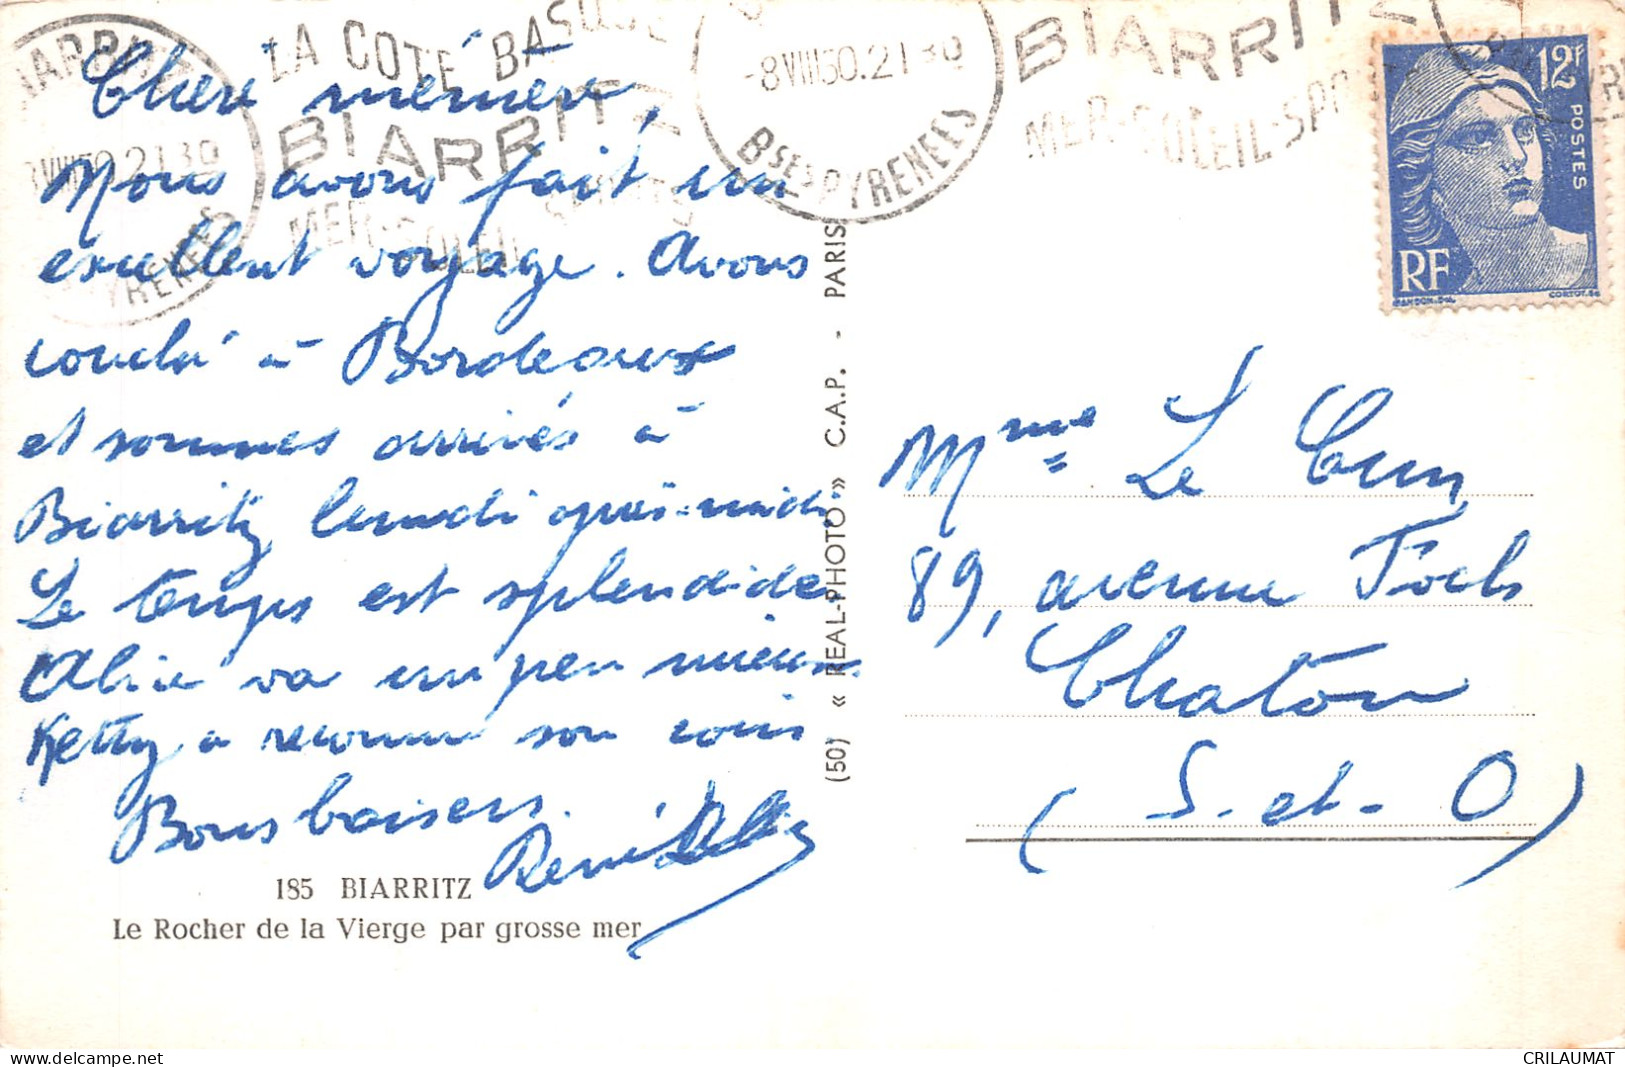 LA COTE BASQUE
BIARRITZ
MER-SOLEIL-SPORTS
-8 VIII 50.21 30
Bses PYRENEES
BIARRITZ
MER-SOLEIL-SPORTS
12F
POSTES
RF
Chère mémère,
Nous avons fait un
excellent voyage. Avons
couché à Bordeaux
et sommes arrivés à
Biarritz lundi après-midi
Le temps est splendide
Alice va un peu mieux.
Ketty a reconnu son coin
Bons baisers.
René
185 BIARRITZ
Le Rocher de la Vierge par grosse mer
(50) « REAL-PHOTO » C.A.P. - PARIS
Mme Le Cun
89, avenue Foch
Chatou
(S.-et-O)
delcampe.net
CRILAUMAT